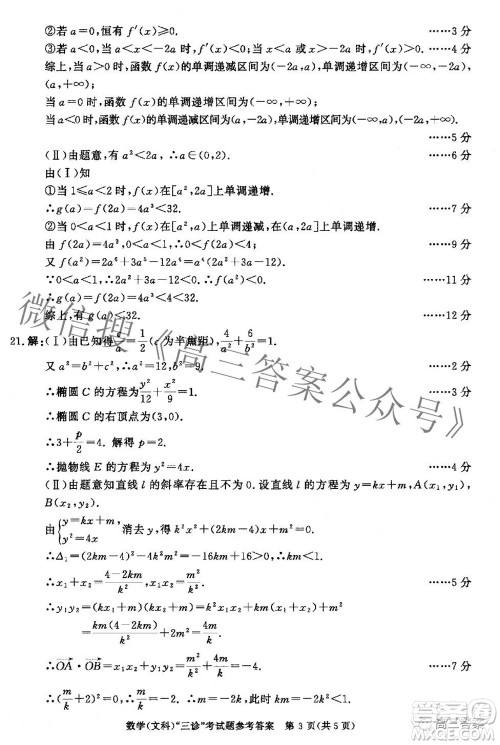 ②若 a=0,恒有 f′(x)≥0. ……3 分
③若 a<0,当 a<x<-2a 时,f′(x)<0,当 x<a 或 x>-2a 时,f′(x)>0. ……4 分
综上,当 a>0 时,函数 f(x)的单调递减区间为(-2a,a),单调递增区间为(-∞,-2a),
(a,+∞);
当 a=0 时,函数 f(x)的单调递增区间为(-∞,+∞);
当 a<0 时,函数 f(x)的单调递减区间为(a,-2a),单调递增区间为(-∞,a),(-2a,+∞).
……5 分
(Ⅱ)由题意,有 a²<2a,∴a∈(0,2). ……6 分
由(Ⅰ)知
①当 1≤a<2 时,f(x)在[a²,2a]上单调递增.
∴g(a)=f(2a)=4a³<32. ……7 分
②当 0<a<1 时,f(x)在(a²,a)上单调递减,在(a,2a)上单调递增.
由 f(2a)=4a³, ……9 分
又 f(a²)=2a⁶+3a⁵-12a⁴=a⁴(2a²+3a-12).
∵0<a<1,∴2a²+3a-12<0. ……11 分
综上,g(a)<32. ……12 分
21.解:(Ⅰ)由已知得 c/a=1/2(c 为半焦距),4/a²+6/b²=1.
又 a²=b²+c², ……2 分
∴椭圆 C 的方程为 y²/12+x²/9=1. ……3 分
∴椭圆 C 的右顶点为(3,0).
∴3+p/2=4. 解得 p=2.
∴抛物线 E 的方程为 y²=4x. ……4 分
(Ⅱ)由题意知直线 l 的斜率存在且不为 0. 设直线 l 的方程为 y=kx+m,A(x₁,y₁),
B(x₂,y₂).
由{y=kx+m y²=4x 消去 y,得 k²x²+(2km-4)x+m²=0.
∴Δ₁=(2km-4)²-4k²m²=-16km+16>0,∴km<1.
∴x₁+x₂=(4-2km)/k²,x₁x₂=m²/k². ……5 分
∴y₁y₂=(kx₁+m)(kx₂+m)=k²x₁x₂+km(x₁+x₂)+m²
=km(4-2km)/k²+2m²=4m/k. ……6 分
∴OA·OB=x₁x₂+y₁y₂=m²/k²+4m/k=-4. ……7 分
∴(m/k+2)²=0. ∴m/k=-2.
数学(文科)“三诊”考试题参考答案 第 3 页(共 5 页)
微信搜《高三答案公众号》
高三答案